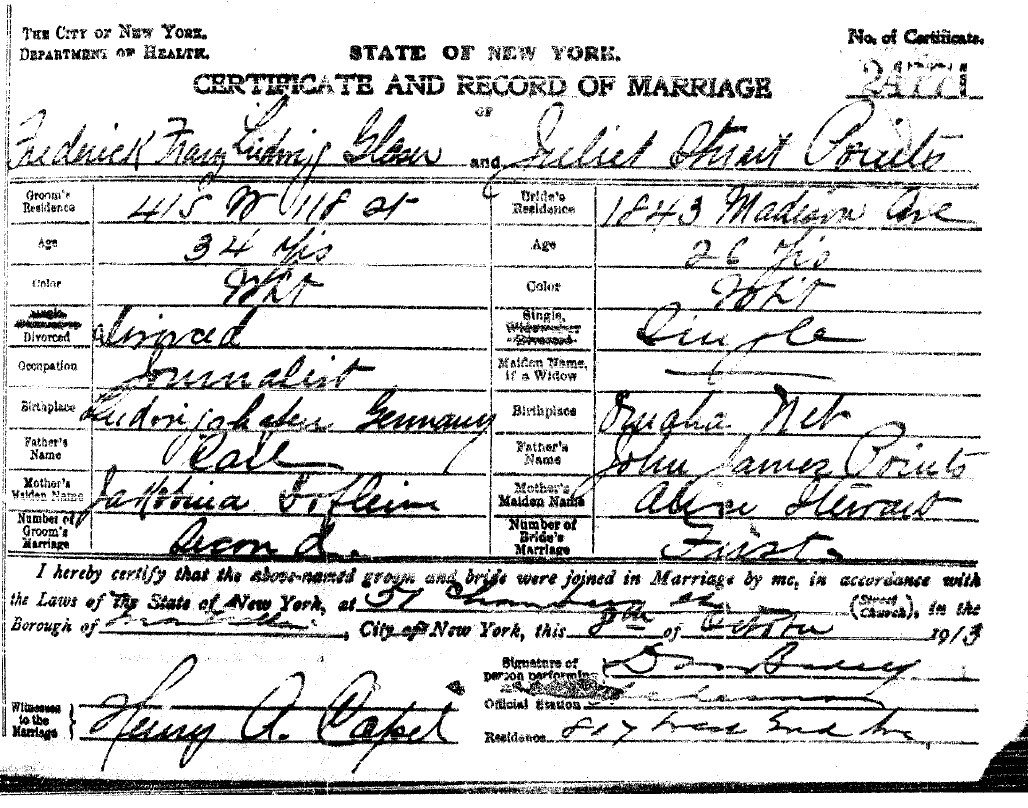 THE CITY OF NEW YORK.
DEPARTMENT OF HEALTH.
STATE OF NEW YORK.
No. of Certificate.
CERTIFICATE AND RECORD OF MARRIAGE
OF
Frederick Franz Ludwig Glaser and Juliet Stuart Points
Groom's Residence 415 W 118 st Bride's Residence 1843 Madison Ave
Age 34 Yrs Age 26 Yrs
Color Whit Color Whit
Divorced divorced Single, Widowed or Divorced Single
Occupation Journalist Maiden Name, if a Widow
Birthplace Ludwigshafen Germany Birthplace Omaha Neb
Father's Name Carl Father's Name John James Points
Mother's Maiden Name Jakobina Mother's Maiden Name Alice Stewart
Number of Groom's Marriage Second. Number of Bride's Marriage First.
I hereby certify that the above-named groom and bride were joined in Marriage by me, in accordance with
the Laws of the State of New York, at 51 Chambers st (Street Church), in the
Borough of Manhattan, City of New York, this 8th of October 1913
Signature of person performing
Official Station
Witnesses to the Marriage Henry A. Capel
Residence 817 West End Ave